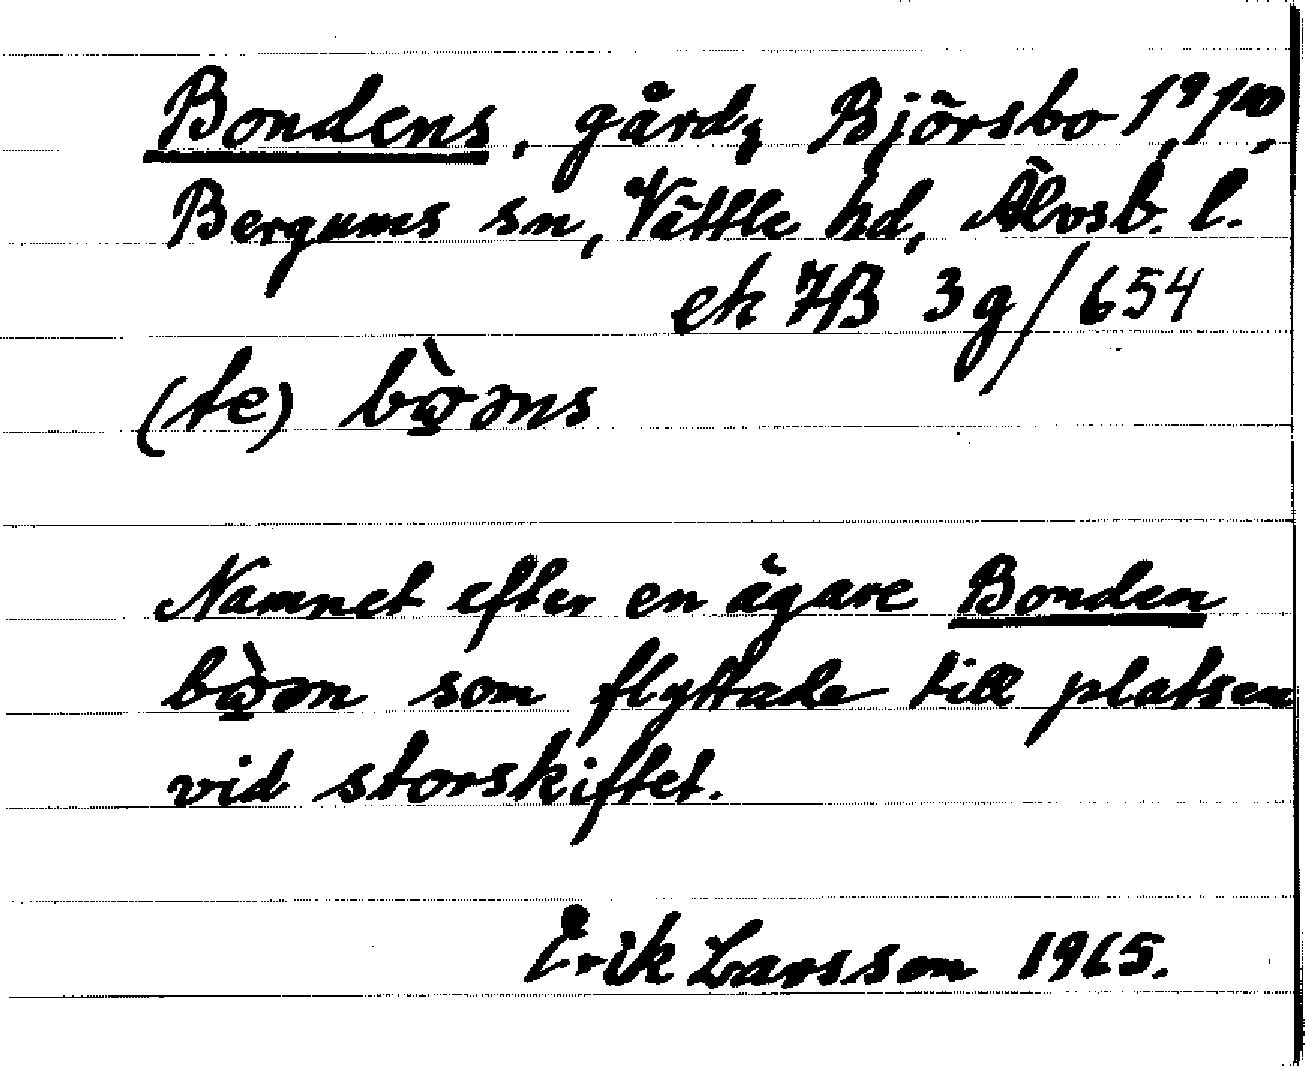 Bondens, gård, Björsbo 1⁹, 1¹⁰,
Bergums sn, Vättle hd, Älvsb. l.
ek 7B 3g/654
(te) bòəns
Namnet efter en ägare Bonden
bòən som flyttade till platsen
vid storskiftet.
Erik Larsson 1965.